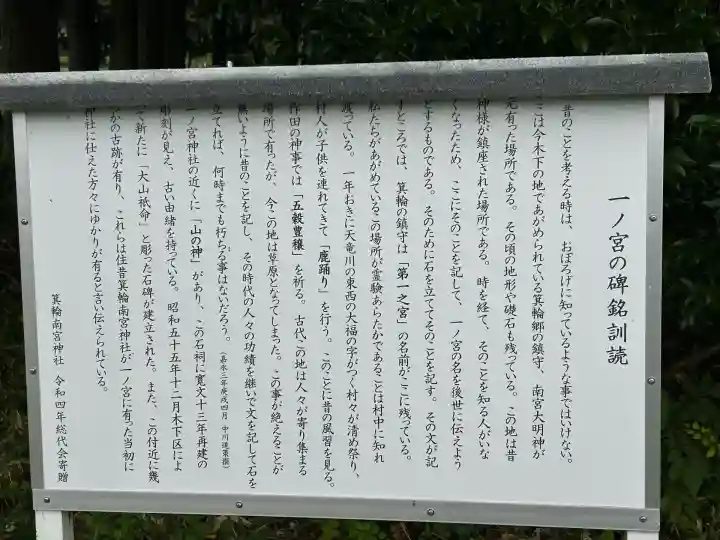 一ノ宮の碑銘訓読
昔のことを考える時は、おぼろげに知っているような事ではいけない。
ここは今木下の地であがめられている箕輪郷の鎮守、南宮大明神が
元有った場所である。その頃の地形や礎石も残っている。この地は昔
神様が鎮座された場所である。時を経て、そのことを知る人がいな
くなったため、ここにそのことを記して、一ノ宮の名を後世に伝えよう
とするものである。そのために石を立ててそのことを記す。その文が記
すところでは、箕輪の鎮守は「第一之宮」の名前がここに残っている。
私たちがあがめているこの場所が霊験あらたかであることは村中に知れ
渡っている。一年おきに天竜川の東西の大福の字がつく村々が清め祭り、
村人が子供を連れてきて「鹿踊り」を行う。このことに昔の風習を見る。
作田の神事では「五穀豊穣」を祈る。古代この地は人々が寄り集まる
場所で有ったが、今この地は草原となってしまった。この事が絶えることが
無いように昔のことを記し、その時代の人々の功績を継いで文を記して石を
立てれば、何時までも朽ちる事はないだろう。（嘉永三年庚戌四月 中川
一ノ宮神社の近くに「山の神」があり、この石祠に寛文十三年再建の
彫刻が見え、古い由緒を持っている。昭和五十五年十二月木下区によ
って新たに「大山祇命」と彫った石碑が建立された。また、この付近に幾
つかの古跡が有り、これらは往昔箕輪南宮神社が一ノ宮に有った当初に
神社に仕えた方々にゆかりが有ると言い伝えられている。
箕輪南宮神社 令和四年総代会寄贈